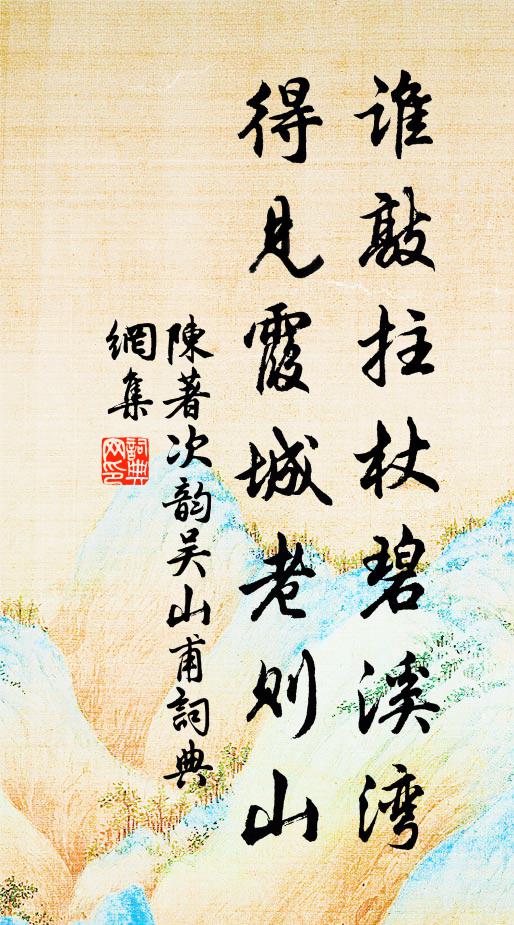 谁敲拄杖碧溪湾
得见霞城老则山
陳著次韵吴山甫詞典
網集
詞典网印